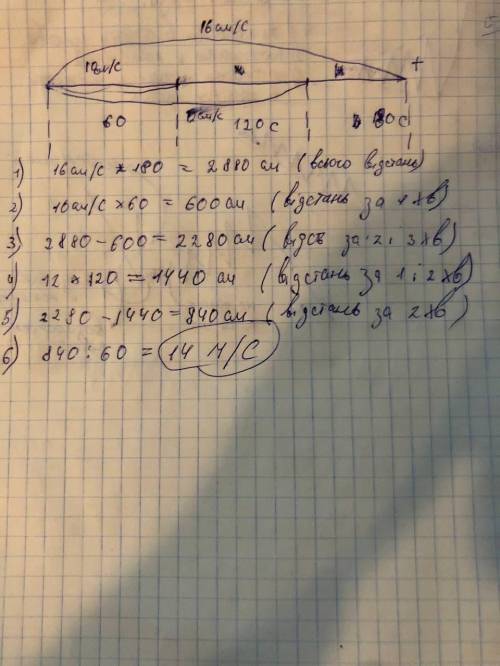 16 см/с
10 м/с
60
см/с
120 с
0 с
1) 16 см/с × 180 = 2880 см (всього відстань)
2) 10 см/с × 60 = 600 см (відстань за 1 хв)
3) 2880 - 600 = 2280 см (відст за 2 і 3 хв)
4) 12 × 120 = 1440 см (відстань за 1 і 2 хв)
5) 2280 - 1440 = 840 см (відстань за 2 хв)
6) 840 : 60 = 14 м/с